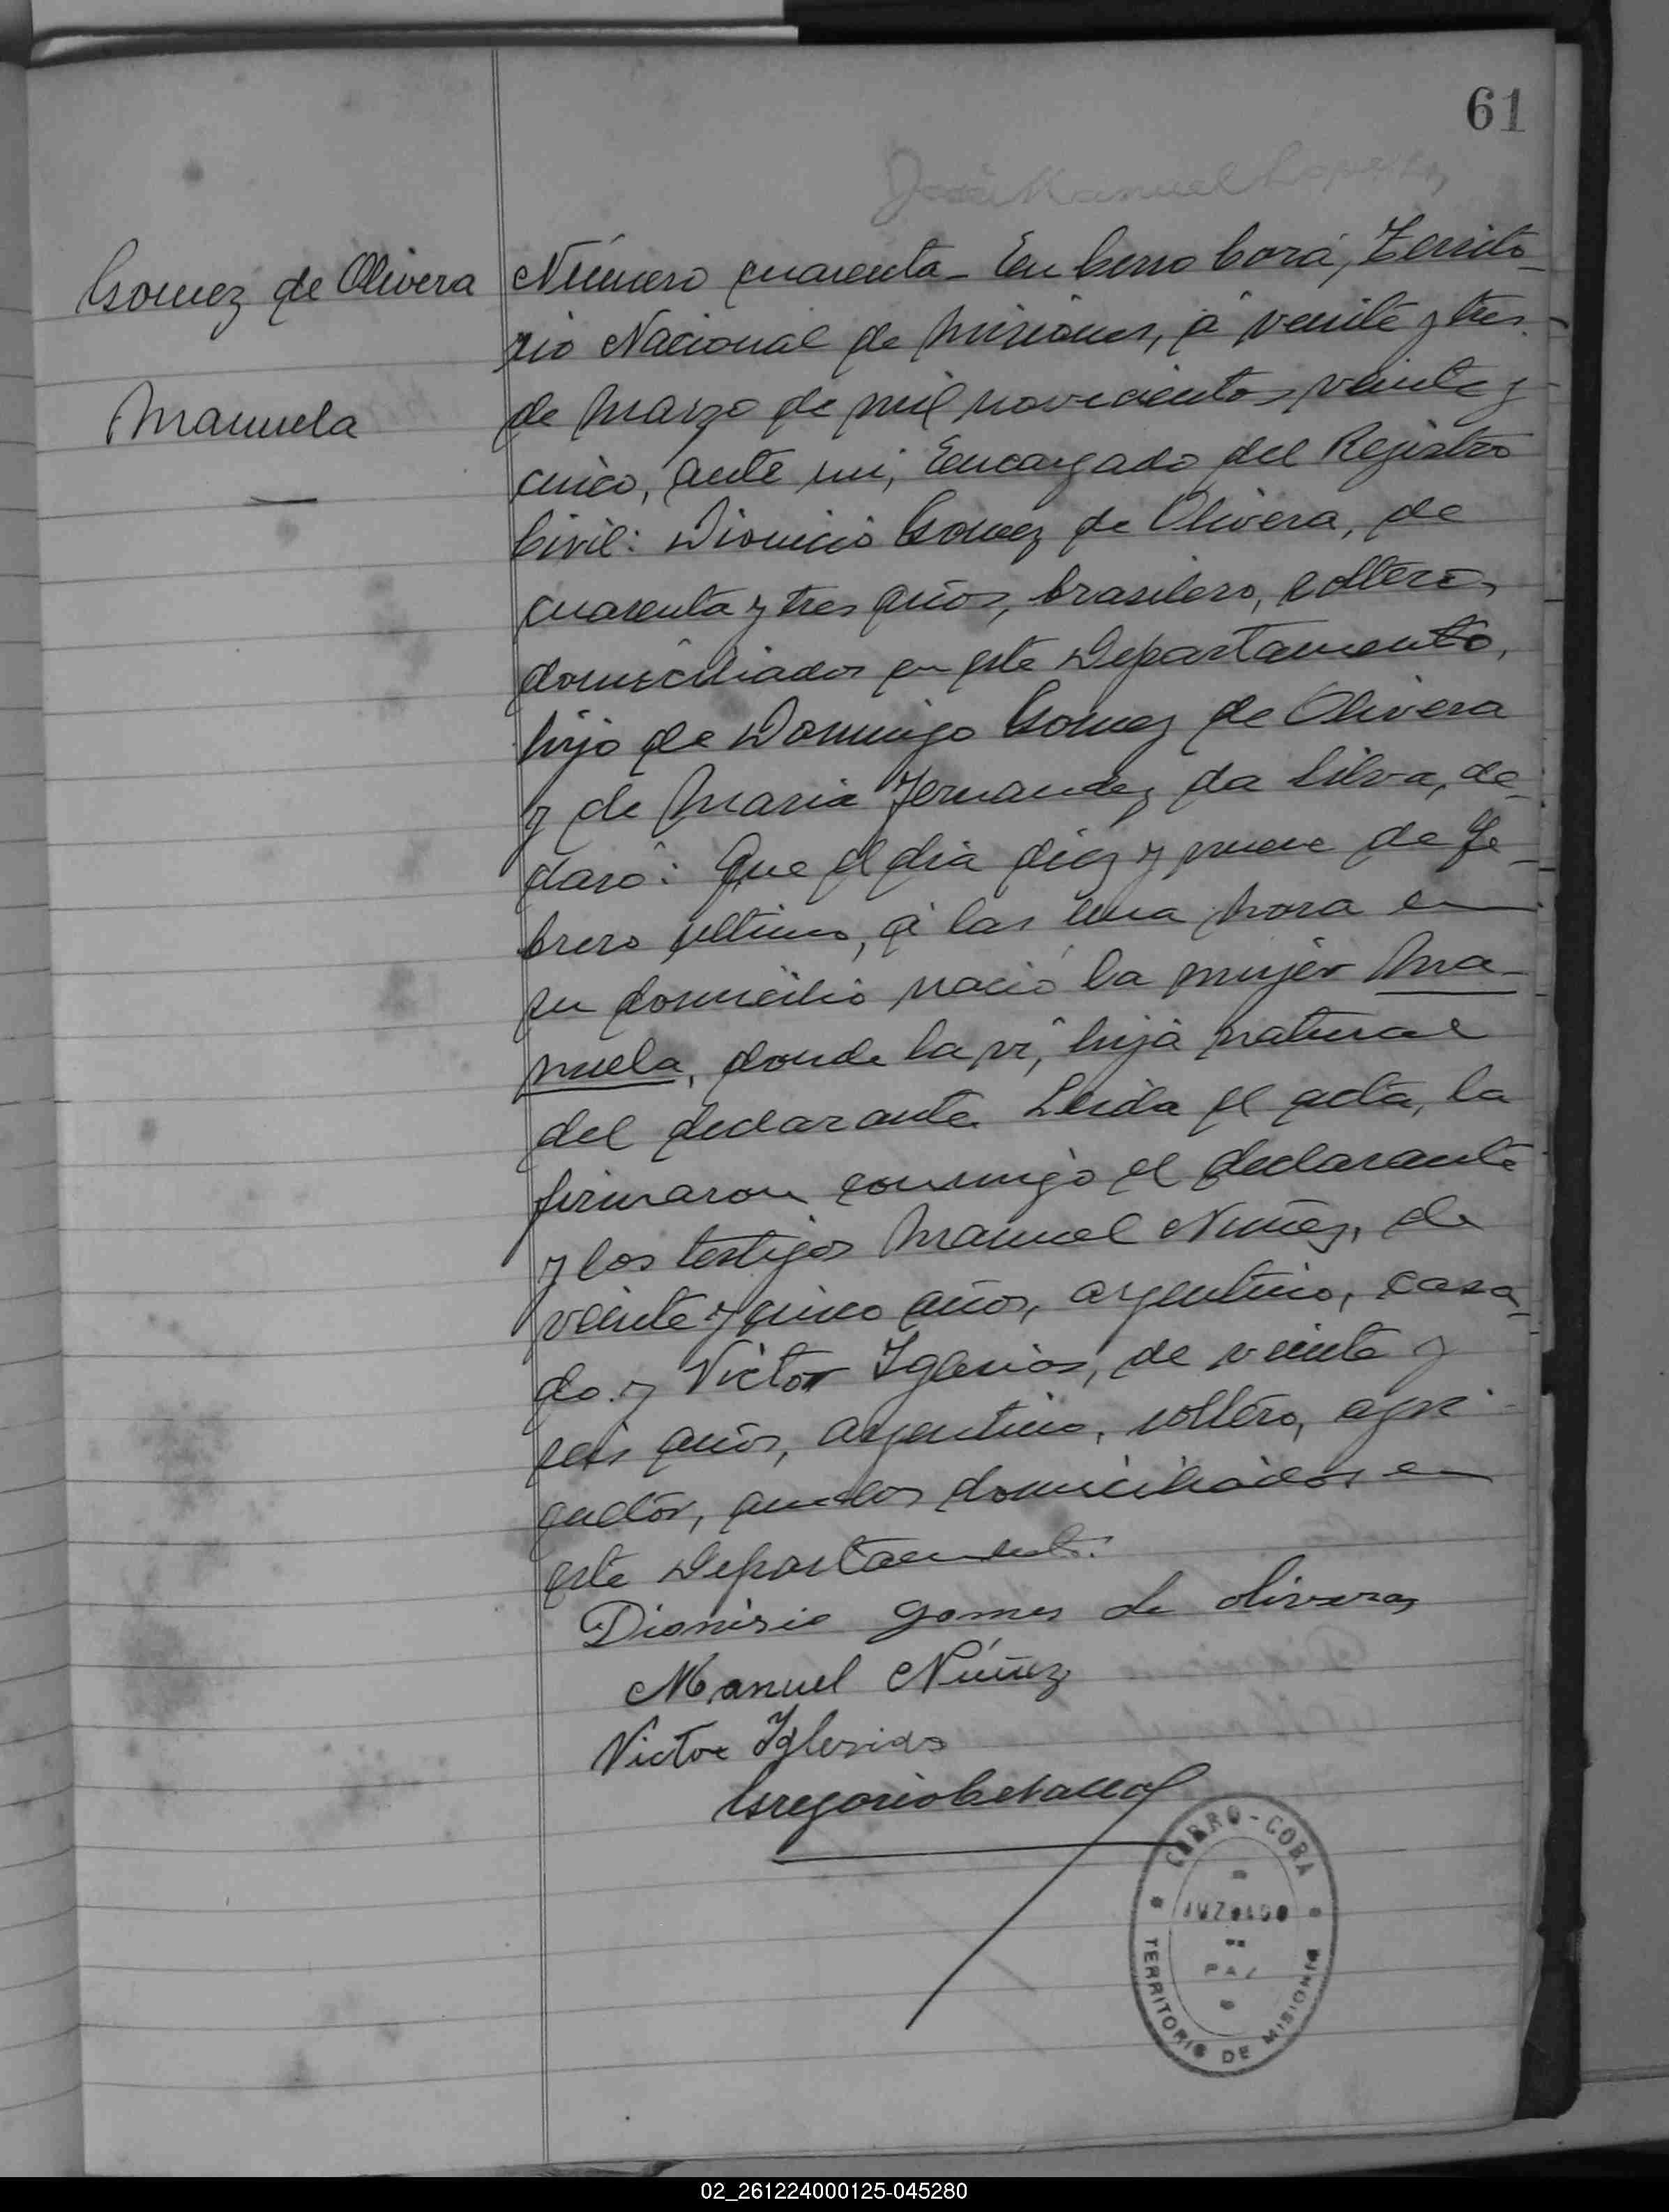 61
José Manuel Lopez
Gomez de Olivera
Manuela
Número cuarenta - En Cerro Corá, Territo-
rio Nacional de Misiones, á veinte y tres
de Marzo de mil novecientos veinte y
cinco, ante mi, Encargado del Registro
Civil: Dionicio Gomez de Olivera, de
cuarenta y tres años, brasilero, soltero,
domiciliados en este Departamento,
hijo de Domingo Gomez de Olivera
y de Maria Fernandez da Silva, de-
claró: Que el dia diez y nueve de Fe-
brero ultimo, á las una hora en
su domicilio nació la mujer Ma-
nuela, donde la ví, hija natural
del declarante. Leida el acta, la
firmaron conmigo el declarante
y los testigos Manuel Nuñez, de
veinte y cinco años, argentino, casa-
do y Victor Iglesias, de veinte y
seis años, argentino, soltero, agri-
cultor, domiciliados en
este Departamento.
Dionisio gomes de olivera
Manuel Núñez
Victor Iglesias
Gregorio
CERRO-CORA
JUZGADO
DE
PAZ
TERRITORIO DE MISIONES
02_261224000125-045280